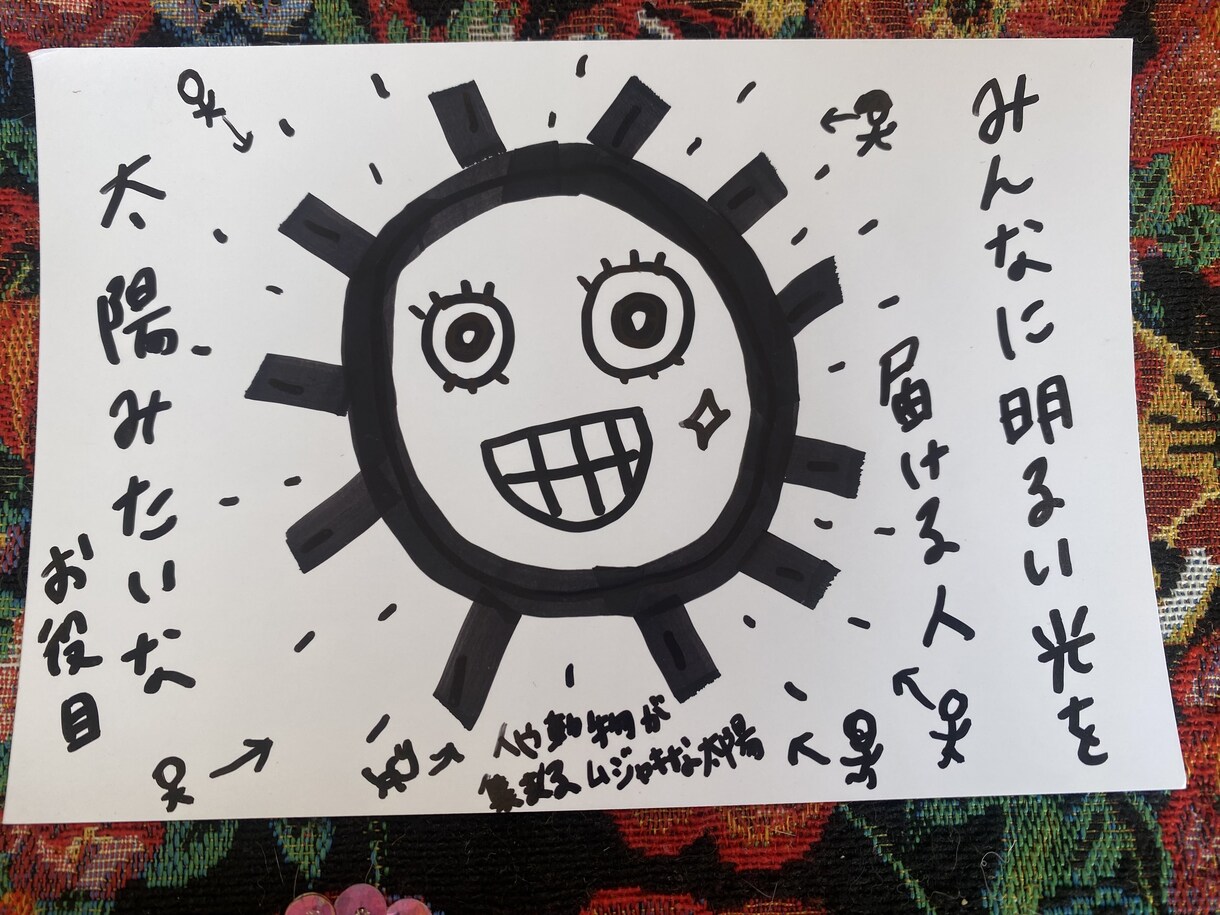 みんなに明るい光を
届ける人
太陽みたいな
お役目
人や動物が
集まるムジャキな太陽